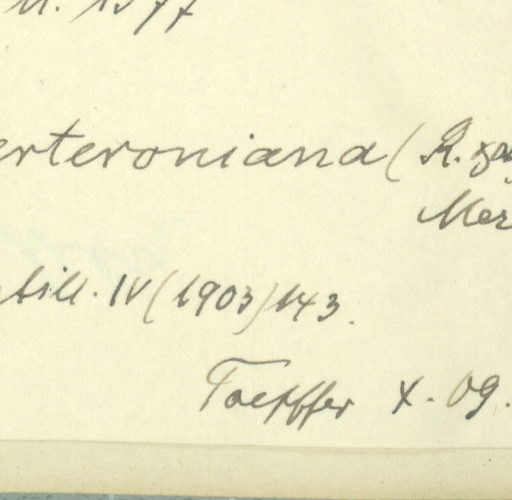 n. 1577
erteroniana (R.
Mer
bill. IV (1903) 143.
Toepffer X. 09.